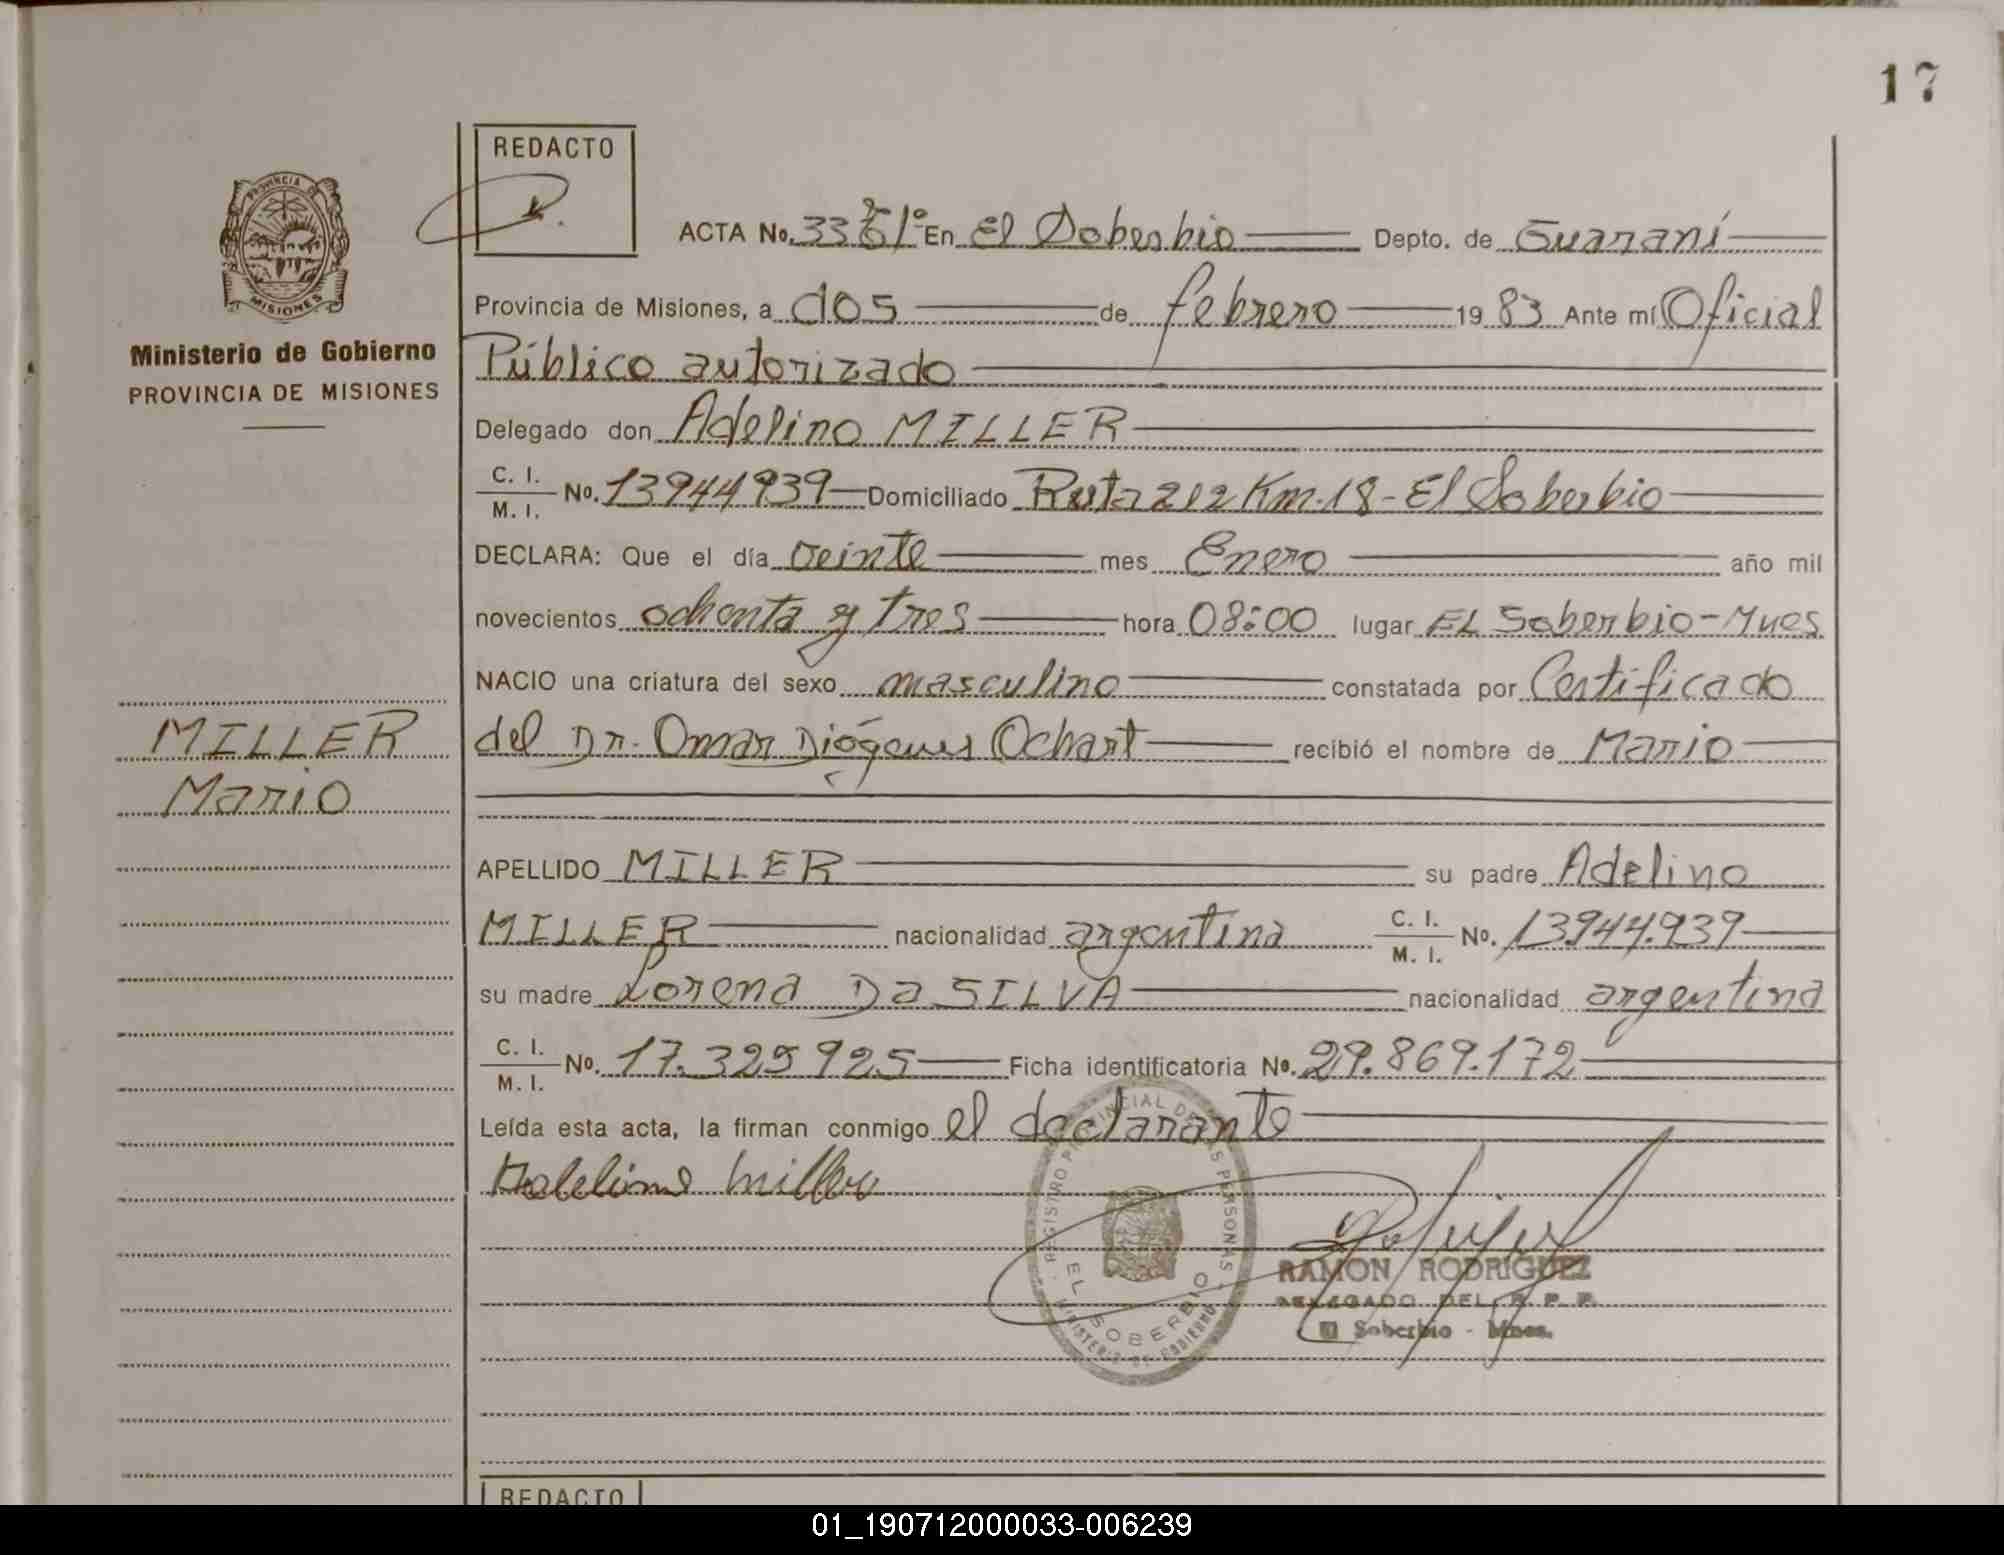 17
REDACTO
PROVINCIA DE
MISIONES
Ministerio de Gobierno
PROVINCIA DE MISIONES
MILLER
Mario
ACTA No. 33 1º En El Soberbio Depto. de Guaraní
Provincia de Misiones, a dos de febrero 19 83 Ante mí Oficial
Público autorizado
Delegado don Adelino MILLER
C. I.
M. I. No. 13944939 Domiciliado Ruta 212 Km. 18 - El Soberbio
DECLARA: Que el día veinte mes Enero año mil
novecientos ochenta y tres hora 08:00 lugar EL Soberbio - Mnes
NACIO una criatura del sexo masculino constatada por Certificado
del Dr. Omar Diógenes Ochart recibió el nombre de Mario
APELLIDO MILLER su padre Adelino
MILLER nacionalidad argentina C. I.
M. I. No. 13.944.939
su madre Lorena Da SILVA nacionalidad argentina
C. I.
M. I. No. 17.325925 Ficha identificatoria No. 29.869.172
Leída esta acta, la firman conmigo el declarante
Adelino Miller
REGISTRO PROVINCIAL DE LAS PERSONAS
EL SOBERBIO
MINISTERIO DE GOBIERNO
RAMON RODRIGUEZ
DELEGADO DEL R. P. P.
El Soberbio - Mnes.
REDACTO
01_190712000033-006239